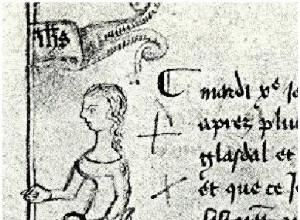 ihs
mardi xe
apres plu
glasdal et
et que ce J